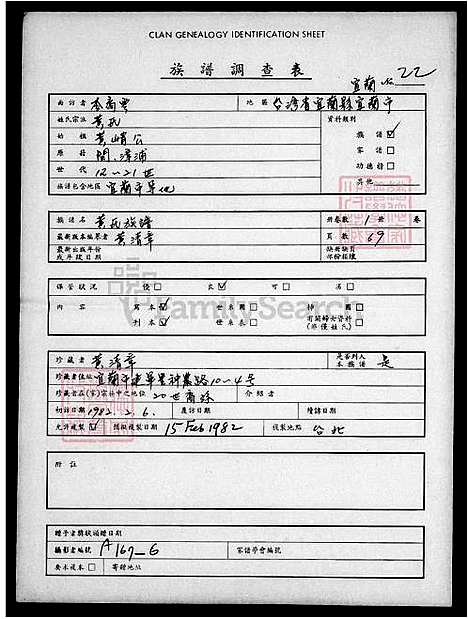 CLAN GENEALOGY IDENTIFICATION SHEET
族譜調查表
宜蘭 No 22
面訪者 地區 台灣省宜蘭縣宜蘭市
姓氏宗派 黃氏 資料類別
始祖 黃峭公 族譜☑
原籍 閩、漳浦 家譜□
世代 12~21世 功德榜□
族譜包含地區 宜蘭市等地 其他
族譜名 黃氏族譜 冊卷數 1 冊 卷
最新版本編纂者 黃清章 頁數 69
最新出版年份 缺冊缺頁
或年竣日期 份份經緯
保管狀況 優□ 良☑ 可□ 劣□
內容 寫本☑ 世系圖□ 排圖□
刊本☑ 世系表□ 有關婦女資料□
(非僅姓氏)
珍藏者 黃清章 是否列入本族譜 是
珍藏者住址 宜蘭市建軍里神農路10-4號
珍藏者在(家)宗祠中之地位 20世裔孫 介紹者
初訪日期 1982.2.6. 覆訪日期 續訪日期
允許複製☑ 攝製日期 15 Feb 1982 複製地點 台北
附註
贈予者獎狀頒贈日期
攝影者編號 A167-6 家譜學會編號
要求複本□ 寄贈地址
FamilySearch